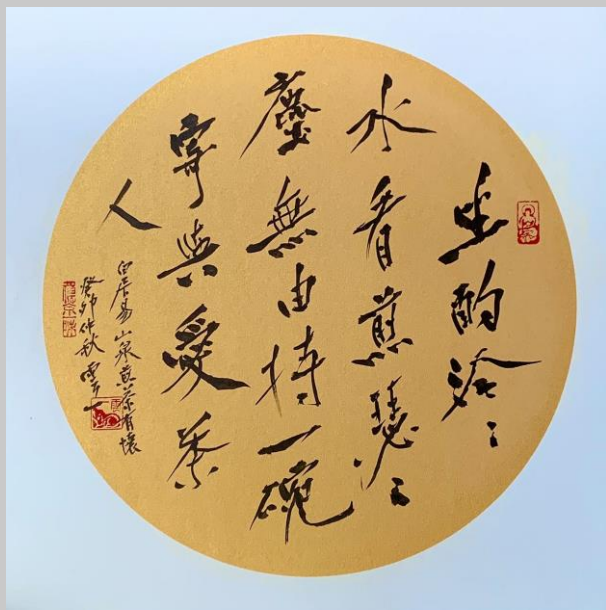 坐酌泠〻
水看煎瑟〻
塵無由持一碗
寄與愛茶
人
白居易山泉煎茶有懷
癸卯仲秋雲